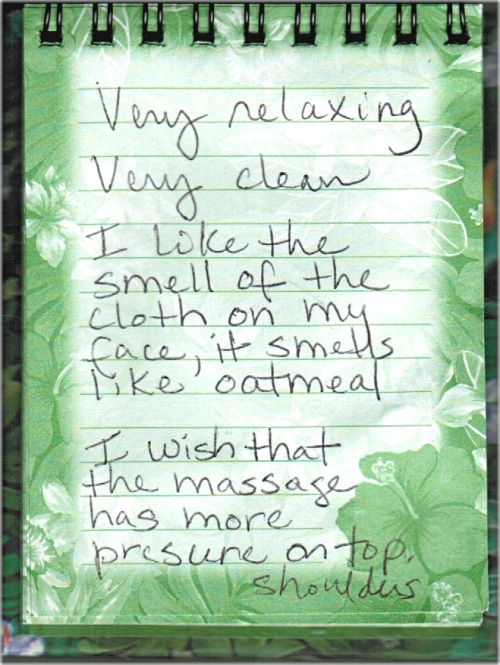 Very relaxing
Very clean
I like the
smell of the
cloth on my
face, it smells
like oatmeal
I wish that
the massage
has more
presure on top.
shoulders